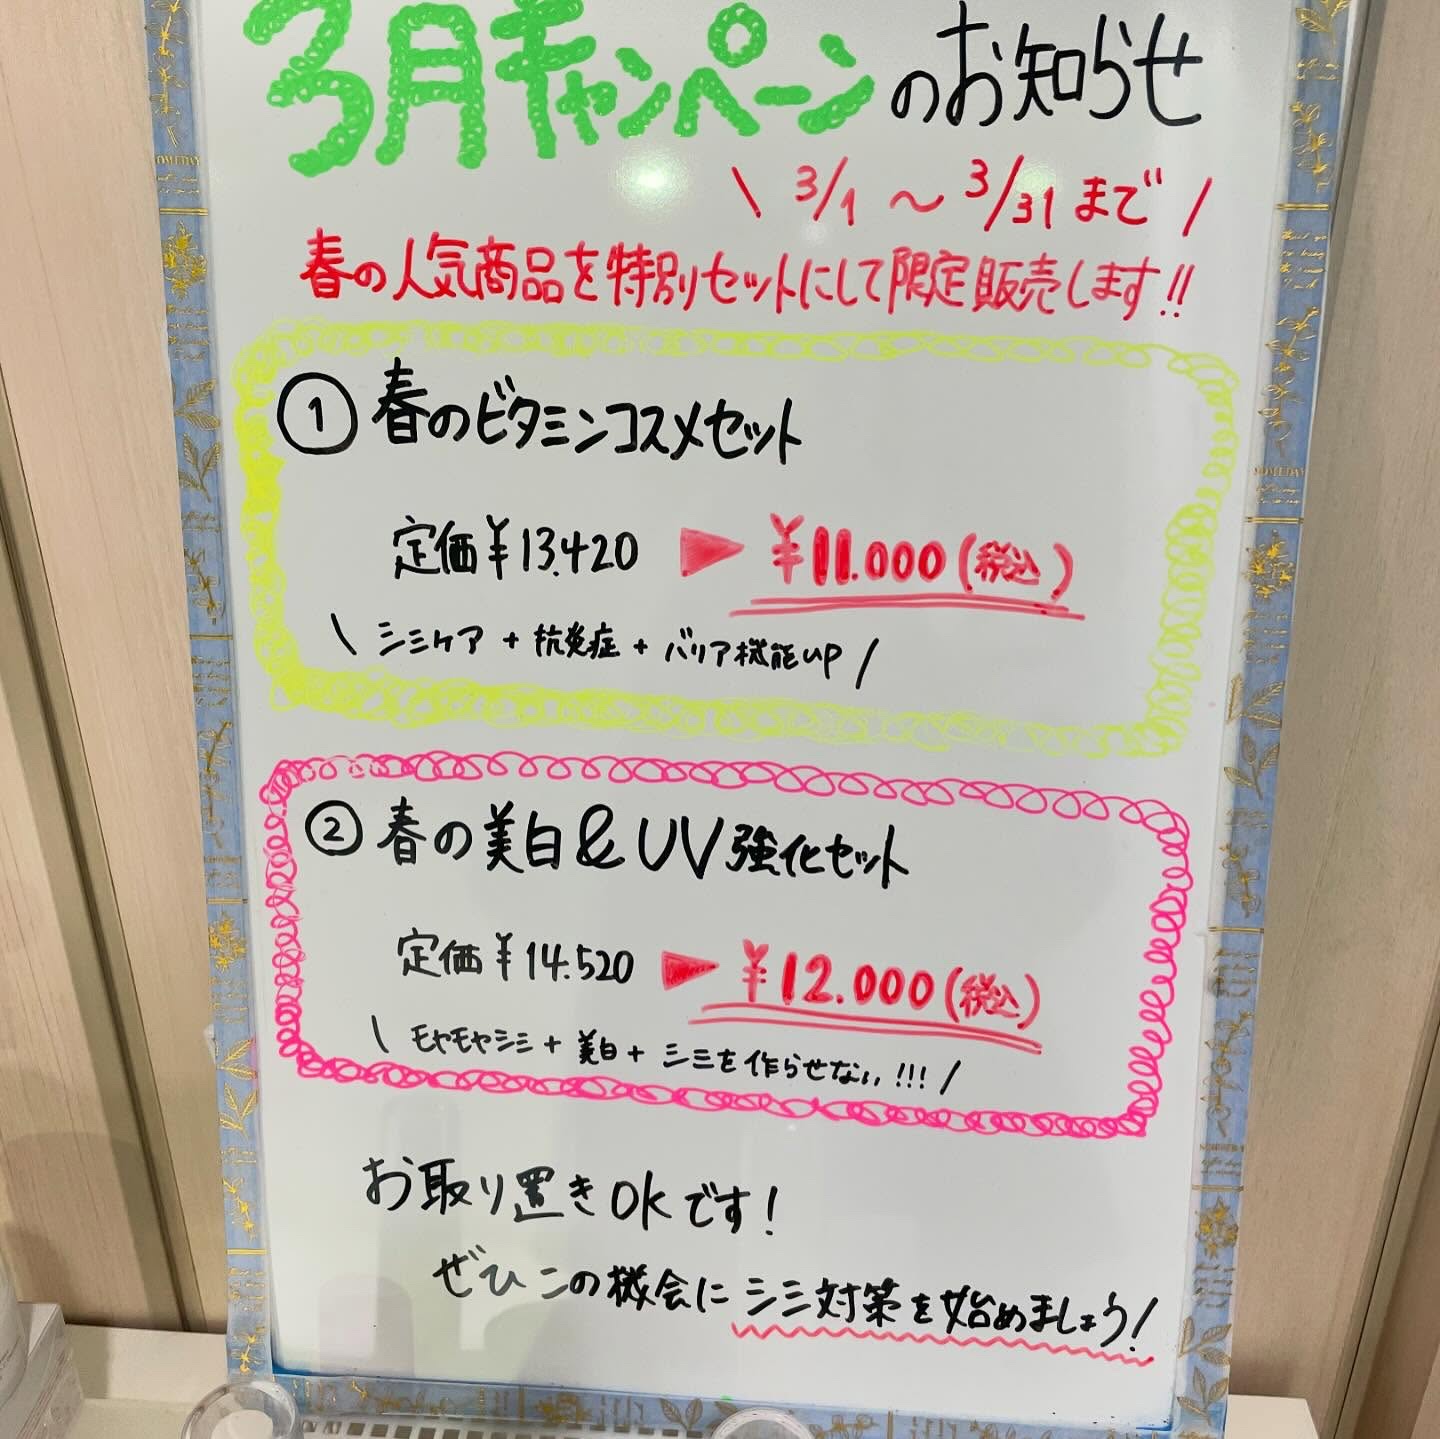 3月キャンペーンのお知らせ
\ 3/1 ～ 3/31 まで /
春の人気商品を特別セットにして限定販売します!!
① 春のビタミンコスメセット
定価¥13.420 ▶ ¥11.000(税込)
\ シミケア + 抗炎症 + バリア機能up /
② 春の美白&UV強化セット
定価¥14.520 ▶ ¥12.000(税込)
\ モヤモヤシミ + 美白 + シミを作らせない!!! /
お取り置きOKです!
ぜひこの機会にシミ対策を始めましょう!